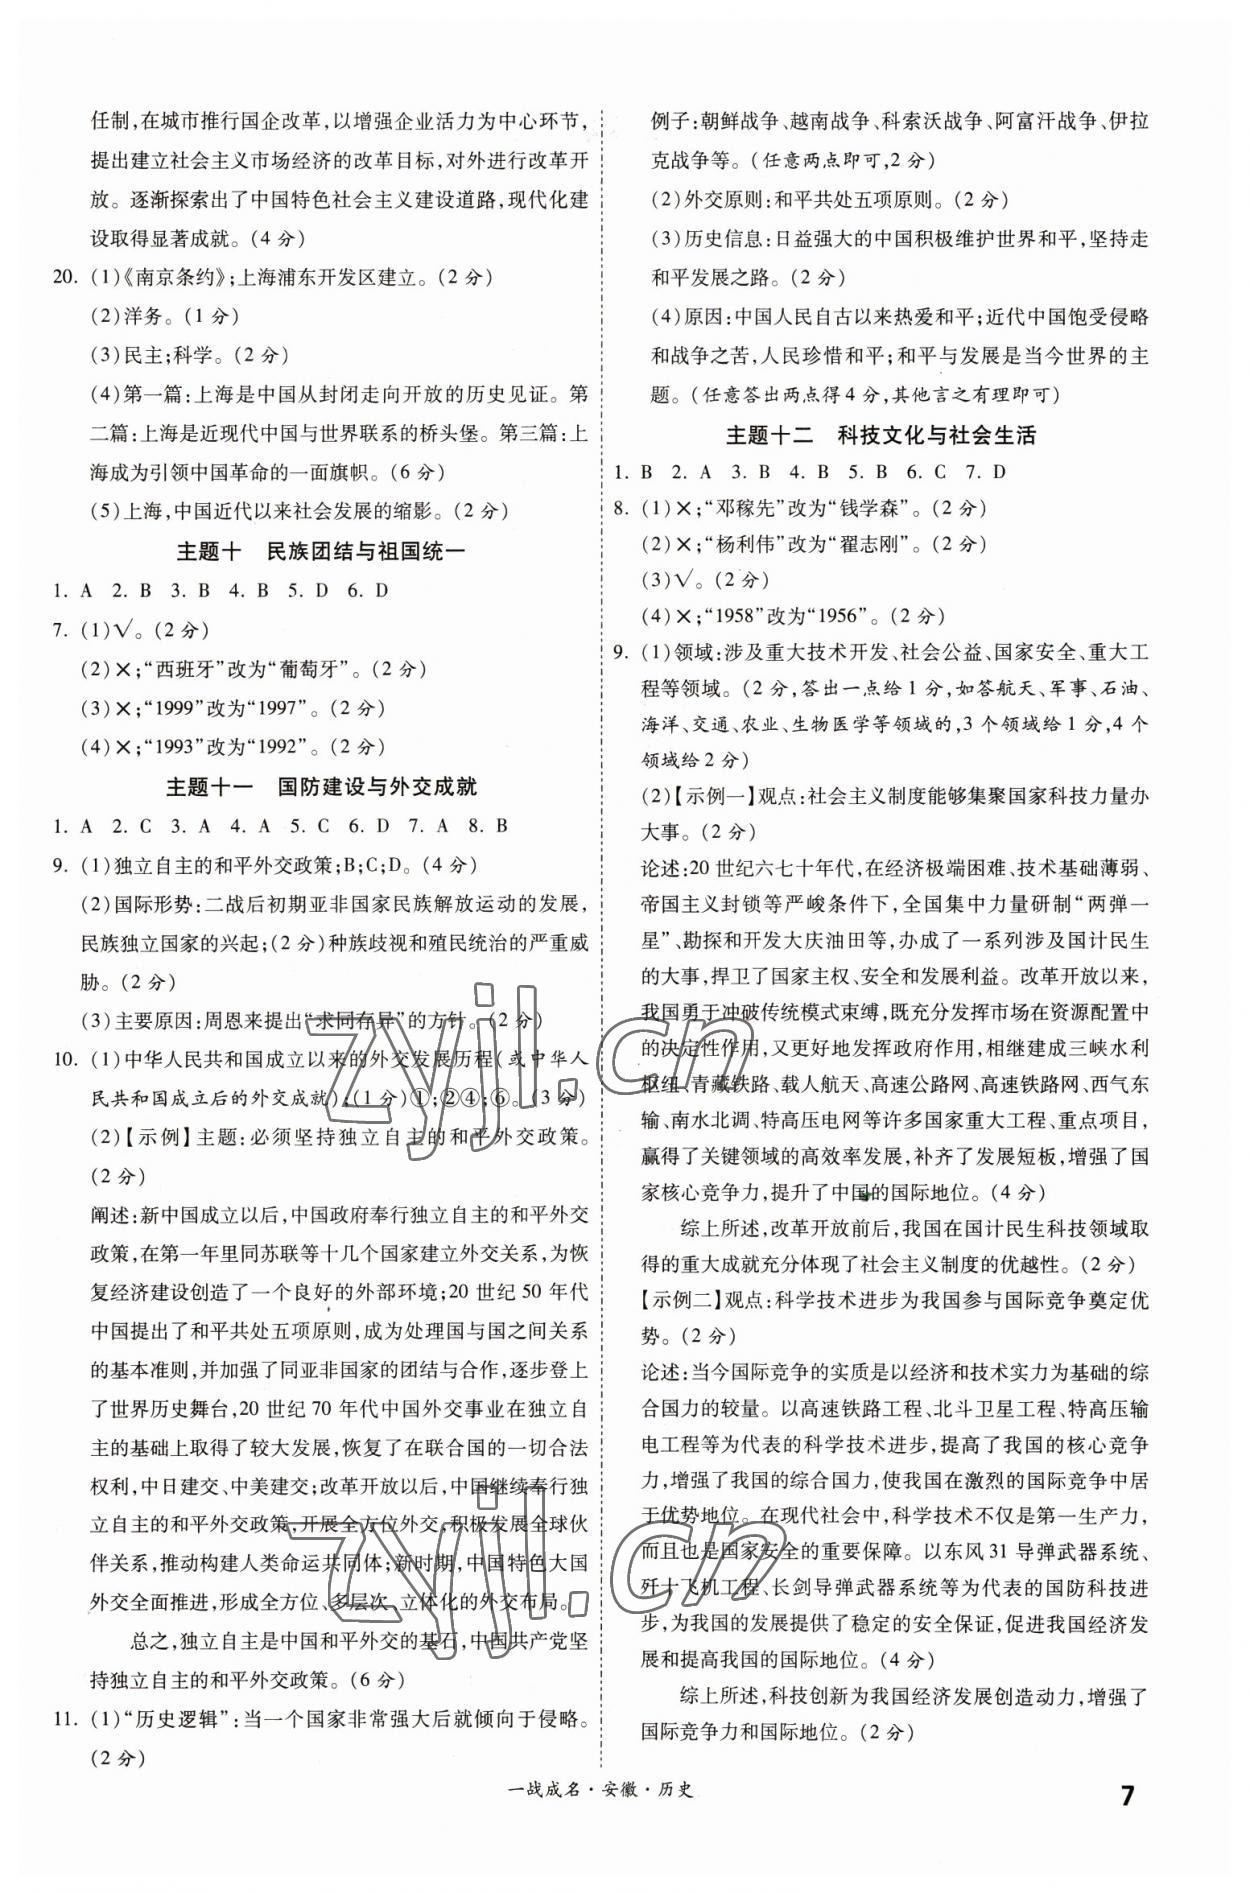 任制,在城市推行国企改革,以增强企业活力为中心环节,
提出建立社会主义市场经济的改革目标,对外进行改革开
放。逐渐探索出了中国特色社会主义建设道路,现代化建
设取得显著成就。(4 分)
20. (1)《南京条约》;上海浦东开发区建立。(2 分)
(2)洋务。(1 分)
(3)民主;科学。(2 分)
(4)第一篇:上海是中国从封闭走向开放的历史见证。第
二篇:上海是近现代中国与世界联系的桥头堡。第三篇:上
海成为引领中国革命的一面旗帜。(6 分)
(5)上海,中国近代以来社会发展的缩影。(2 分)
主题十 民族团结与祖国统一
1. A 2. B 3. B 4. B 5. D 6. D
7. (1)√。(2 分)
(2)×;“西班牙”改为“葡萄牙”。(2 分)
(3)×;“1999”改为“1997”。(2 分)
(4)×;“1993”改为“1992”。(2 分)
主题十一 国防建设与外交成就
1. A 2. C 3. A 4. A 5. C 6. D 7. A 8. B
9. (1)独立自主的和平外交政策;B;C;D。(4 分)
(2)国际形势:二战后初期亚非国家民族解放运动的发展,
民族独立国家的兴起;(2 分)种族歧视和殖民统治的严重威
胁。(2 分)
(3)主要原因:周恩来提出“求同存异”的方针。(2 分)
10. (1)中华人民共和国成立以来的外交发展历程(或中华人
民共和国成立后的外交成就);(1 分)①;②④;⑥。(3 分)
(2)【示例】主题:必须坚持独立自主的和平外交政策。
(2 分)
阐述:新中国成立以后,中国政府奉行独立自主的和平外交
政策,在第一年里同苏联等十几个国家建立外交关系,为恢
复经济建设创造了一个良好的外部环境;20 世纪 50 年代
中国提出了和平共处五项原则,成为处理国与国之间关系
的基本准则,并加强了同亚非国家的团结与合作,逐步登上
了世界历史舞台,20 世纪 70 年代中国外交事业在独立自
主的基础上取得了较大发展,恢复了在联合国的一切合法
权利,中日建交、中美建交;改革开放以后,中国继续奉行独
立自主的和平外交政策,开展全方位外交,积极发展全球伙
伴关系,推动构建人类命运共同体;新时期,中国特色大国
外交全面推进,形成全方位、多层次、立体化的外交布局。
总之,独立自主是中国和平外交的基石,中国共产党坚
持独立自主的和平外交政策。(6 分)
11. (1)“历史逻辑”:当一个国家非常强大后就倾向于侵略。
(2 分)
例子:朝鲜战争、越南战争、科索沃战争、阿富汗战争、伊拉
克战争等。(任意两点即可,2 分)
(2)外交原则:和平共处五项原则。(2 分)
(3)历史信息:日益强大的中国积极维护世界和平,坚持走
和平发展之路。(2 分)
(4)原因:中国人民自古以来热爱和平;近代中国饱受侵略
和战争之苦,人民珍惜和平;和平与发展是当今世界的主
题。(任意答出两点得 4 分,其他言之有理即可)
主题十二 科技文化与社会生活
1. B 2. A 3. B 4. B 5. B 6. C 7. D
8. (1)×;“邓稼先”改为“钱学森”。(2 分)
(2)×;“杨利伟”改为“翟志刚”。(2 分)
(3)√。(2 分)
(4)×;“1958”改为“1956”。(2 分)
9. (1)领域:涉及重大技术开发、社会公益、国家安全、重大工
程等领域。(2 分,答出一点给 1 分,如答航天、军事、石油、
海洋、交通、农业、生物医学等领域的,3 个领域给 1 分,4 个
领域给 2 分)
(2)【示例一】观点:社会主义制度能够集聚国家科技力量办
大事。(2 分)
论述:20 世纪六七十年代,在经济极端困难、技术基础薄弱、
帝国主义封锁等严峻条件下,全国集中力量研制“两弹一
星”、勘探和开发大庆油田等,办成了一系列涉及国计民生
的大事,捍卫了国家主权、安全和发展利益。改革开放以来,
我国勇于冲破传统模式束缚,既充分发挥市场在资源配置中
的决定性作用,又更好地发挥政府作用,相继建成三峡水利
枢纽、青藏铁路、载人航天、高速公路网、高速铁路网、西气东
输、南水北调、特高压电网等许多国家重大工程、重点项目,
赢得了关键领域的高效率发展,补齐了发展短板,增强了国
家核心竞争力,提升了中国的国际地位。(4 分)
综上所述,改革开放前后,我国在国计民生科技领域取
得的重大成就充分体现了社会主义制度的优越性。(2 分)
【示例二】观点:科学技术进步为我国参与国际竞争奠定优
势。(2 分)
论述:当今国际竞争的实质是以经济和技术实力为基础的综
合国力的较量。以高速铁路工程、北斗卫星工程、特高压输
电工程等为代表的科学技术进步,提高了我国的核心竞争
力,增强了我国的综合国力,使我国在激烈的国际竞争中居
于优势地位。在现代社会中,科学技术不仅是第一生产力,
而且也是国家安全的重要保障。以东风 31 导弹武器系统、
歼十飞机工程、长剑导弹武器系统等为代表的国防科技进
步,为我国的发展提供了稳定的安全保证,促进我国经济发
展和提高我国的国际地位。(4 分)
综上所述,科技创新为我国经济发展创造动力,增强了
国际竞争力和国际地位。(2 分)
一战成名·安徽·历史
7
zyjl.cn
zyjl.cn